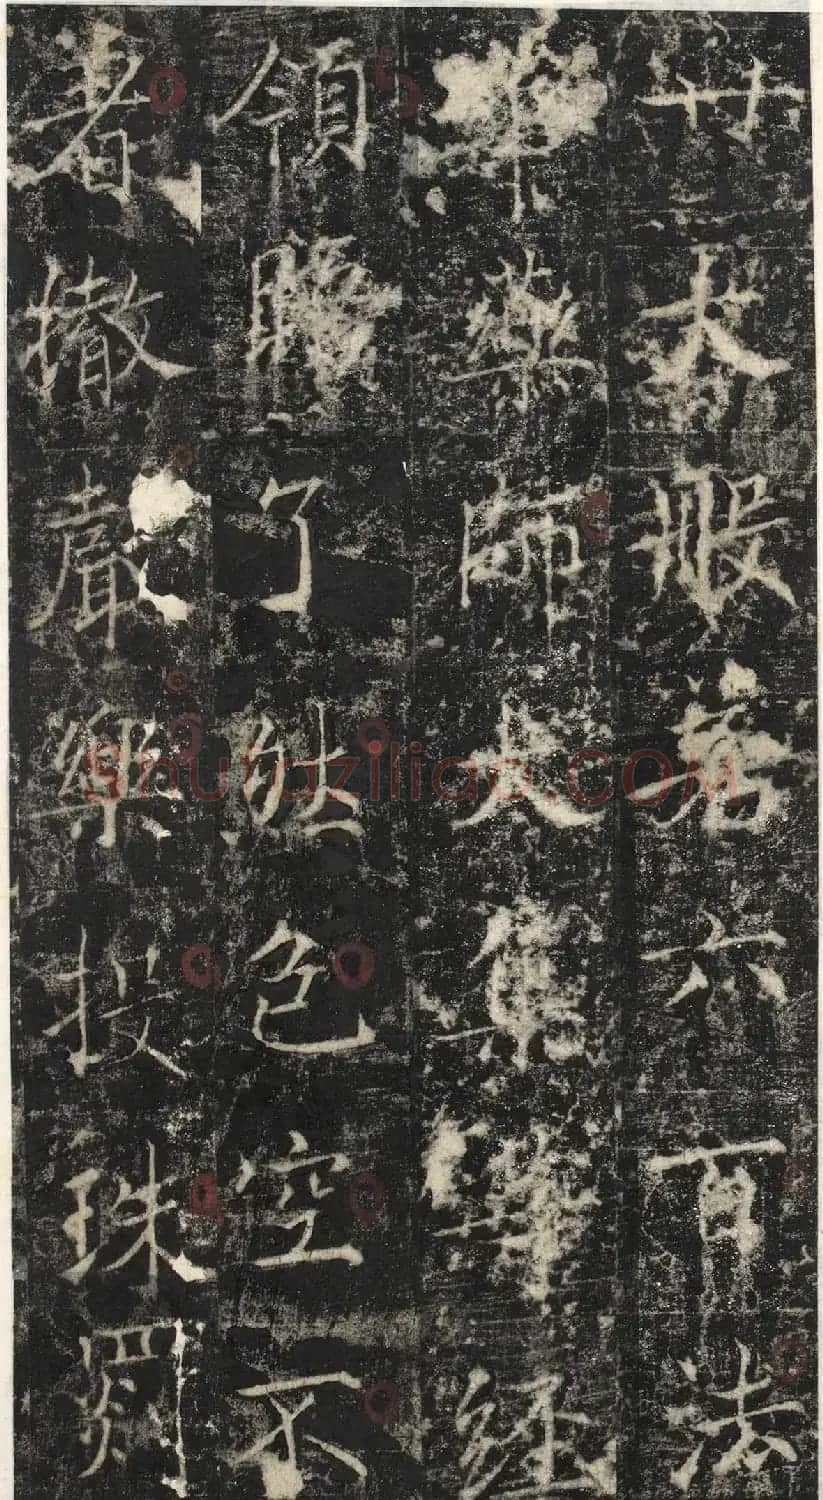 廿大般若六百法
華藥師大集經
領了色空不
著撤聲樂投珠罽
shufaziliao.COM